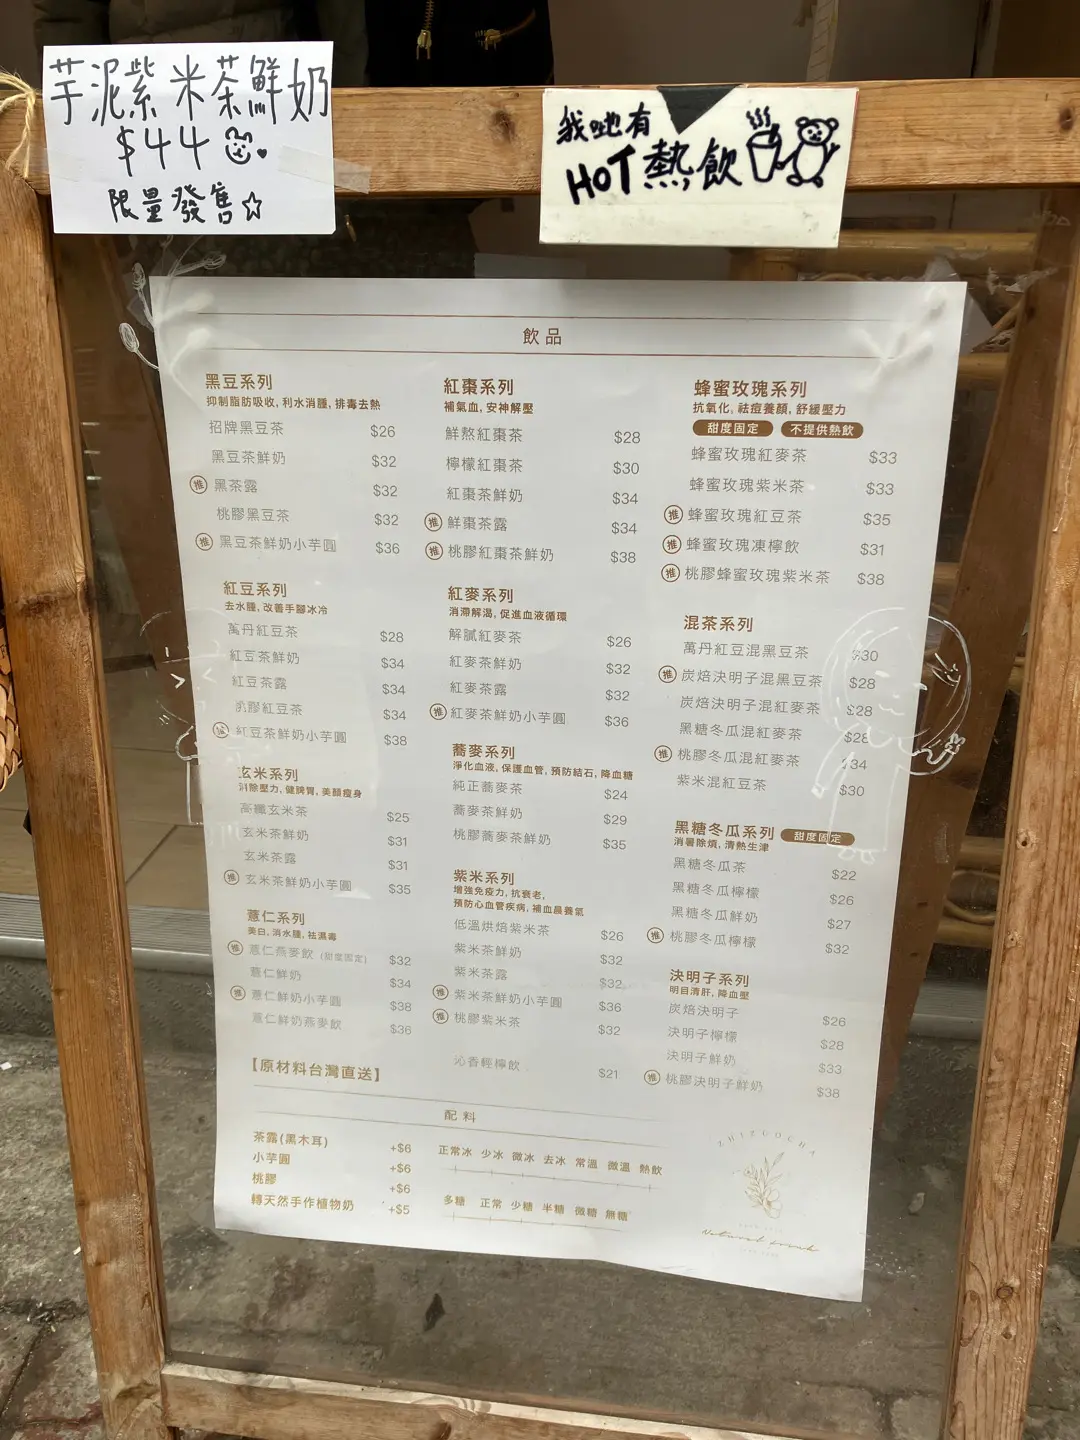 芋泥紫米茶鮮奶
$44
限量發售
我哋有
HOT熱飲
飲品
黑豆系列
抑制脂肪吸收, 利水消腫, 排毒去熱
招牌黑豆茶 $26
黑豆茶鮮奶 $32
推 黑茶露 $32
桃膠黑豆茶 $32
推 黑豆茶鮮奶小芋圓 $36
紅豆系列
去水腫, 改善手腳冰冷
萬丹紅豆茶 $28
紅豆茶鮮奶 $34
紅豆茶露 $34
桃膠紅豆茶 $34
推 紅豆茶鮮奶小芋圓 $38
玄米系列
消除壓力, 健脾胃, 美顏瘦身
高纖玄米茶 $25
玄米茶鮮奶 $31
玄米茶露 $31
推 玄米茶鮮奶小芋圓 $35
薏仁系列
美白, 消水腫, 祛濕毒
推 薏仁燕麥飲 (甜度固定) $32
薏仁鮮奶 $34
推 薏仁鮮奶小芋圓 $38
薏仁鮮奶燕麥飲 $36
【原材料台灣直送】
紅棗系列
補氣血, 安神解壓
鮮熬紅棗茶 $28
檸檬紅棗茶 $30
紅棗茶鮮奶 $34
推 鮮棗茶露 $34
推 桃膠紅棗茶鮮奶 $38
紅麥系列
消滯解渴, 促進血液循環
解膩紅麥茶 $26
紅麥茶鮮奶 $32
紅麥茶露 $32
推 紅麥茶鮮奶小芋圓 $36
蕎麥系列
淨化血液, 保護血管, 預防結石, 降血糖
純正蕎麥茶 $24
蕎麥茶鮮奶 $29
桃膠蕎麥茶鮮奶 $35
紫米系列
增強免疫力, 抗衰老,
預防心血管疾病, 補血晨養氣
低溫烘焙紫米茶 $26
紫米茶鮮奶 $32
紫米茶露 $32
推 紫米茶鮮奶小芋圓 $36
推 桃膠紫米茶 $32
沁香輕檸飲 $21
蜂蜜玫瑰系列
抗氧化, 祛痘養顏, 舒緩壓力
甜度固定 不提供熱飲
蜂蜜玫瑰紅麥茶 $33
蜂蜜玫瑰紫米茶 $33
推 蜂蜜玫瑰紅豆茶 $35
推 蜂蜜玫瑰凍檸飲 $31
推 桃膠蜂蜜玫瑰紫米茶 $38
混茶系列
萬丹紅豆混黑豆茶 $30
推 炭焙決明子混黑豆茶 $28
炭焙決明子混紅麥茶 $28
黑糖冬瓜混紅麥茶 $28
推 桃膠冬瓜混紅麥茶 $34
紫米混紅豆茶 $30
黑糖冬瓜系列 甜度固定
消暑除煩, 清熱生津
黑糖冬瓜茶 $22
黑糖冬瓜檸檬 $26
黑糖冬瓜鮮奶 $27
推 桃膠冬瓜檸檬 $32
決明子系列
明目清肝, 降血壓
炭焙決明子 $26
決明子檸檬 $28
決明子鮮奶 $33
推 桃膠決明子鮮奶 $38
配料
茶露(黑木耳) +$6
小芋圓 +$6
桃膠 +$6
轉天然手作植物奶 +$5
正常冰 少冰 微冰 去冰 常溫 微溫 熱飲
多糖 正常 少糖 半糖 微糖 無糖
Natural fresh